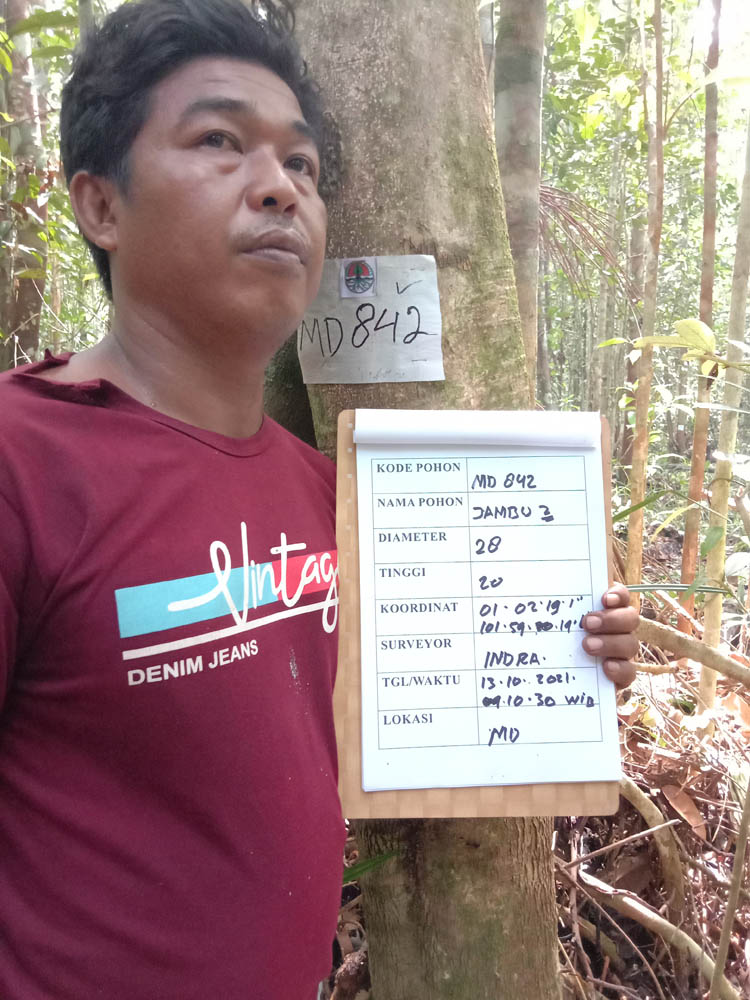 MD 842
Vintag
DENIM JEANS
KODE POHON MD 842
NAMA POHON JAMBU 2
DIAMETER 28
TINGGI 20
KOORDINAT 01.02'19.1"
101.59.
SURVEYOR INDRA.
TGL/WAKTU 13.10.2021.
09.10.30 WIB
LOKASI MD